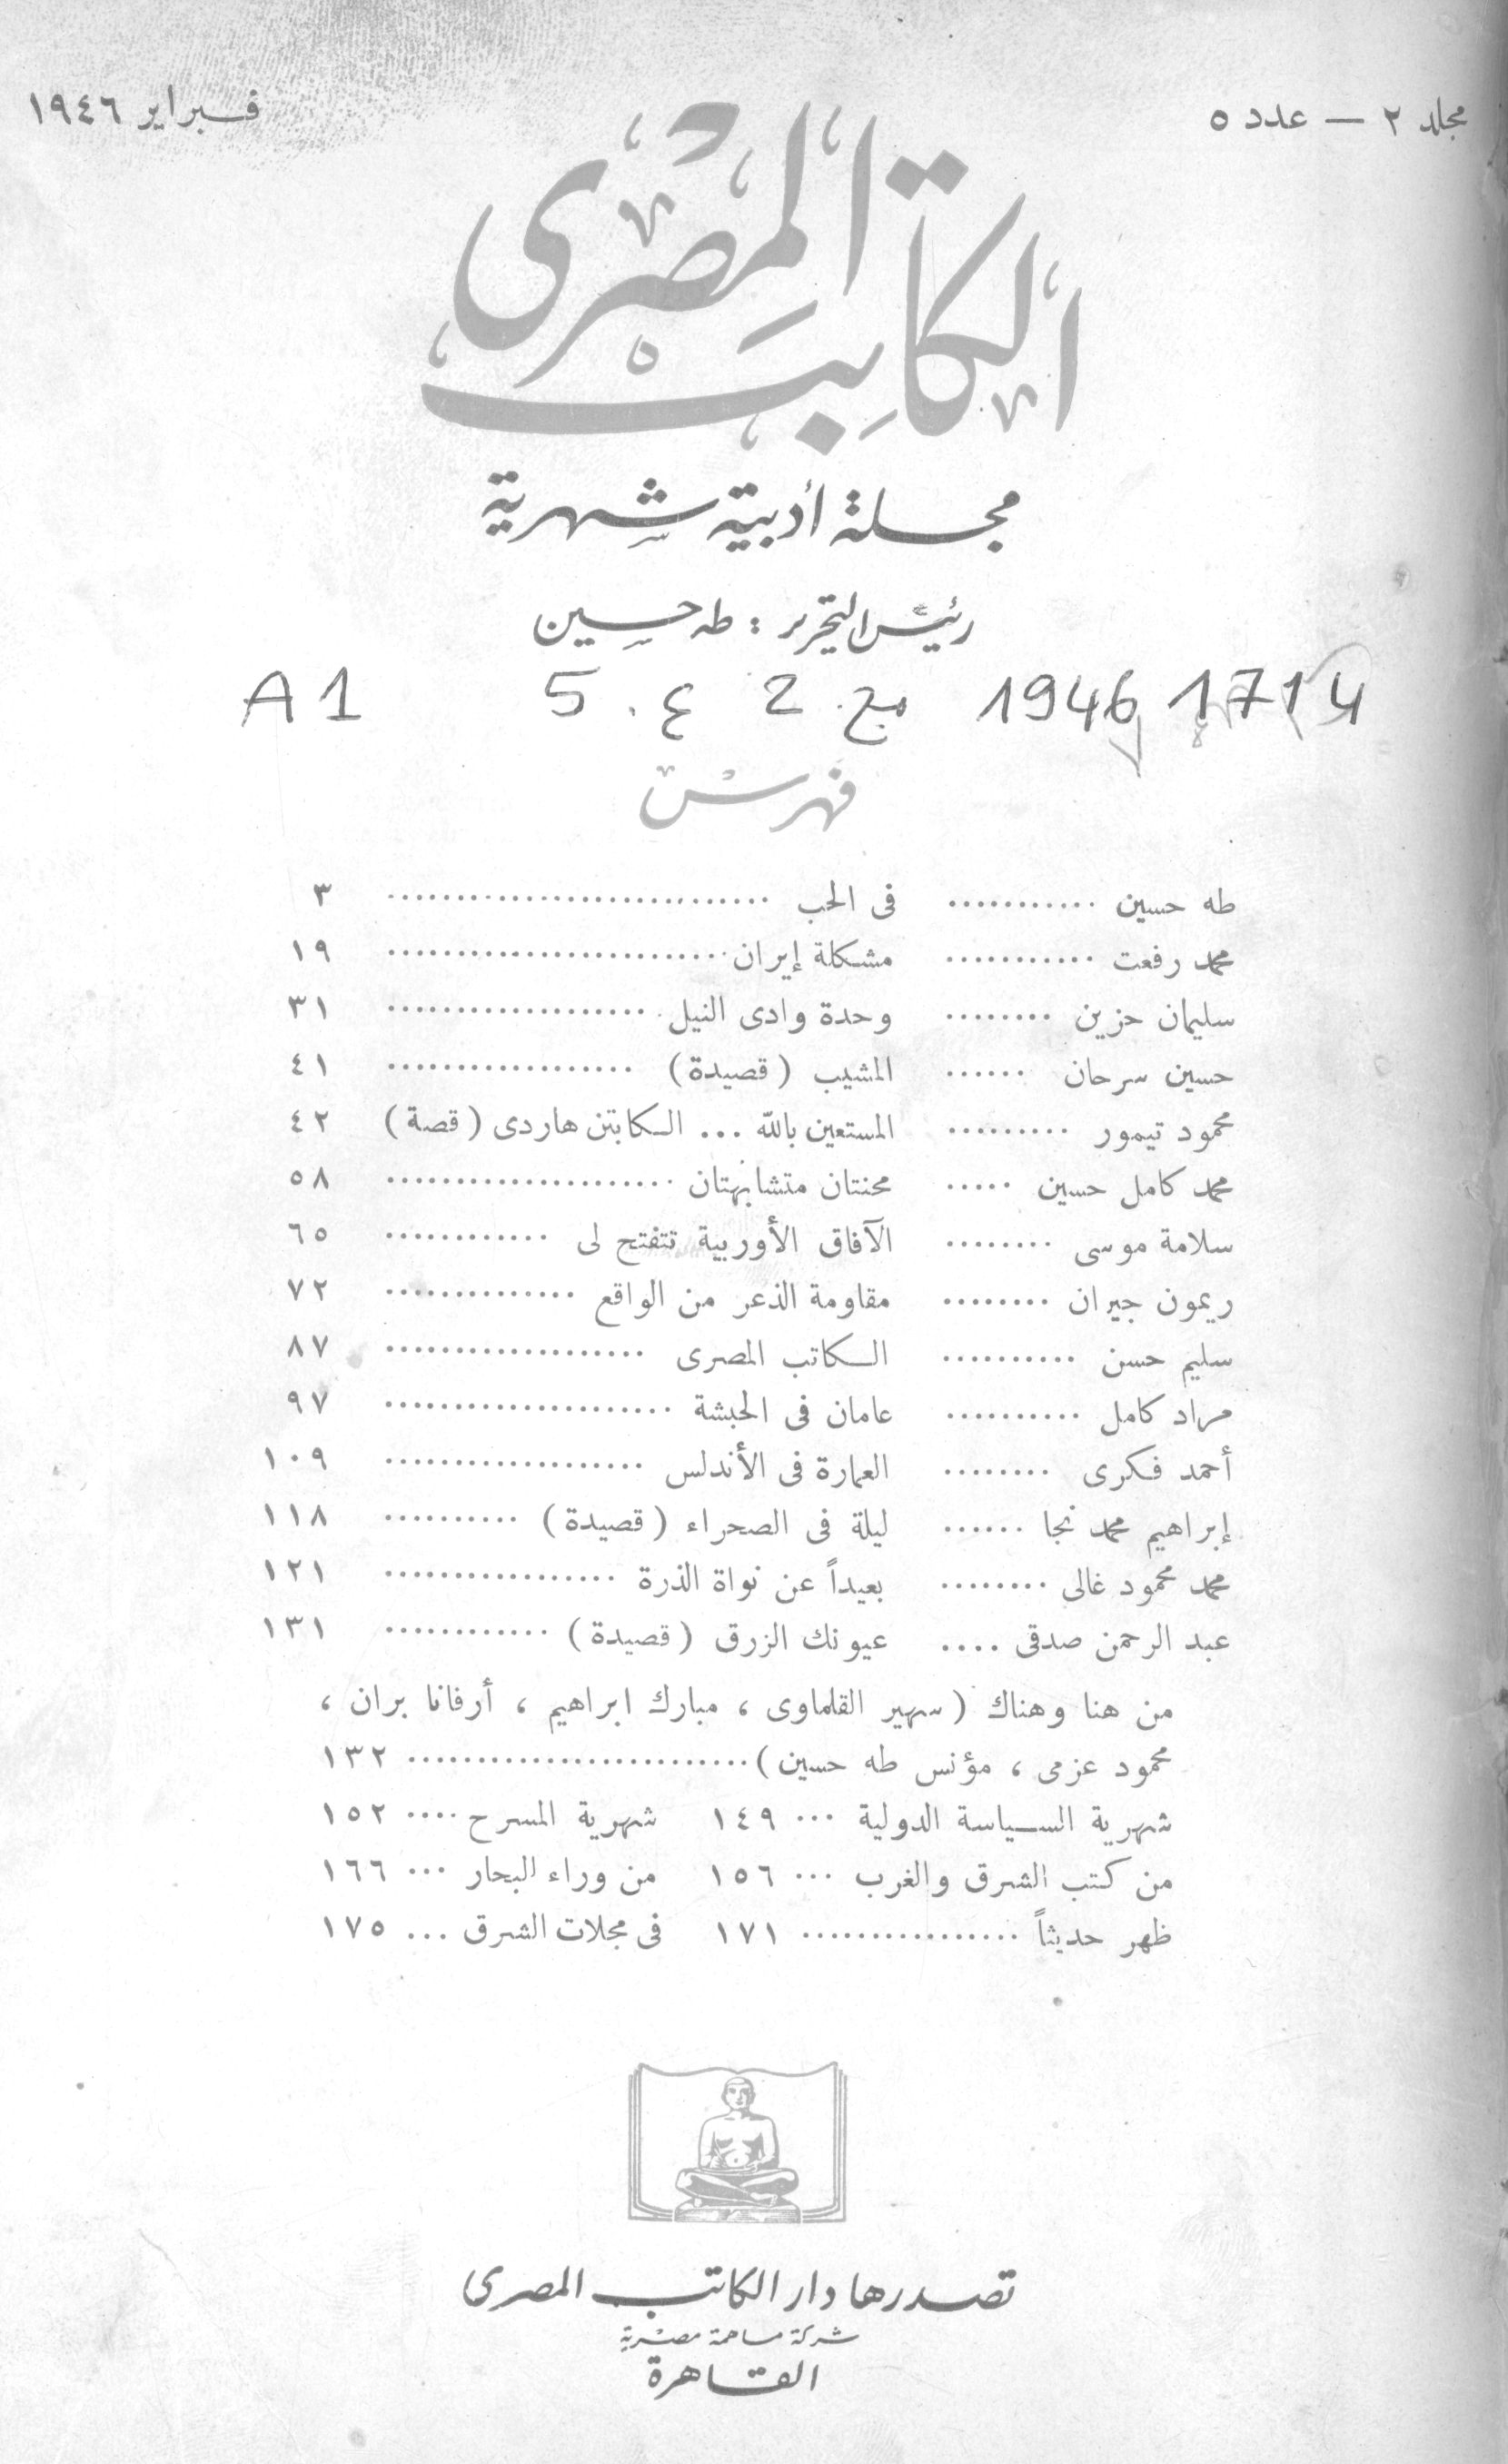 مجلد ٢ — عدد ٥
فبراير ١٩٤٦
الكاتب المصرى
مجلة أدبية شهرية
رئيس التحرير : طه حسين
1714 1946 مج. 2 ع. 5 A1
فهرس
طه حسين ........... فى الحب ........... ٣
محمد رفعت ........... مشكلة إيران ........... ١٩
سليمان حزين ........ وحدة وادى النيل ........... ٣١
حسين سرحان ...... المشيب ( قصيدة ) ........... ٤١
محمود تيمور ......... المستعين بالله ... الكابتن هاردى ( قصة ) ٤٢
محمد كامل حسين ..... محنتان متشابهتان ........... ٥٨
سلامة موسى ........ الآفاق الأوربية تتفتح لى ............ ٦٥
ريمون جيران ........ مقاومة الذعر من الواقع ............ ٧٢
سليم حسن .......... الكاتب المصرى ........... ٨٧
مراد كامل .......... عامان فى الحبشة ........... ٩٧
أحمد فكرى ........ العمارة فى الأندلس ........... ١٠٩
إبراهيم محمد نجا ...... ليلة فى الصحراء ( قصيدة ) .......... ١١٨
محمد محمود غالى ........ بعيداً عن نواة الذرة ........... ١٢١
عبد الرحمن صدقى .... عيونك الزرق ( قصيدة ) ............ ١٣١
من هنا وهناك ( سهير القلماوى ، مبارك ابراهيم ، أرفانا بران ،
محمود عزمى ، مؤنس طه حسين ) ........... ١٣٢
شهرية السياسة الدولية ... ١٤٩ شهرية المسرح .... ١٥٢
من كتب الشرق والغرب ... ١٥٦ من وراء البحار ... ١٦٦
ظهر حديثاً ................ ١٧١ فى مجلات الشرق ... ١٧٥
تصدرها دار الكاتب المصرى
شركة مساهمة مصرية
القاهرة